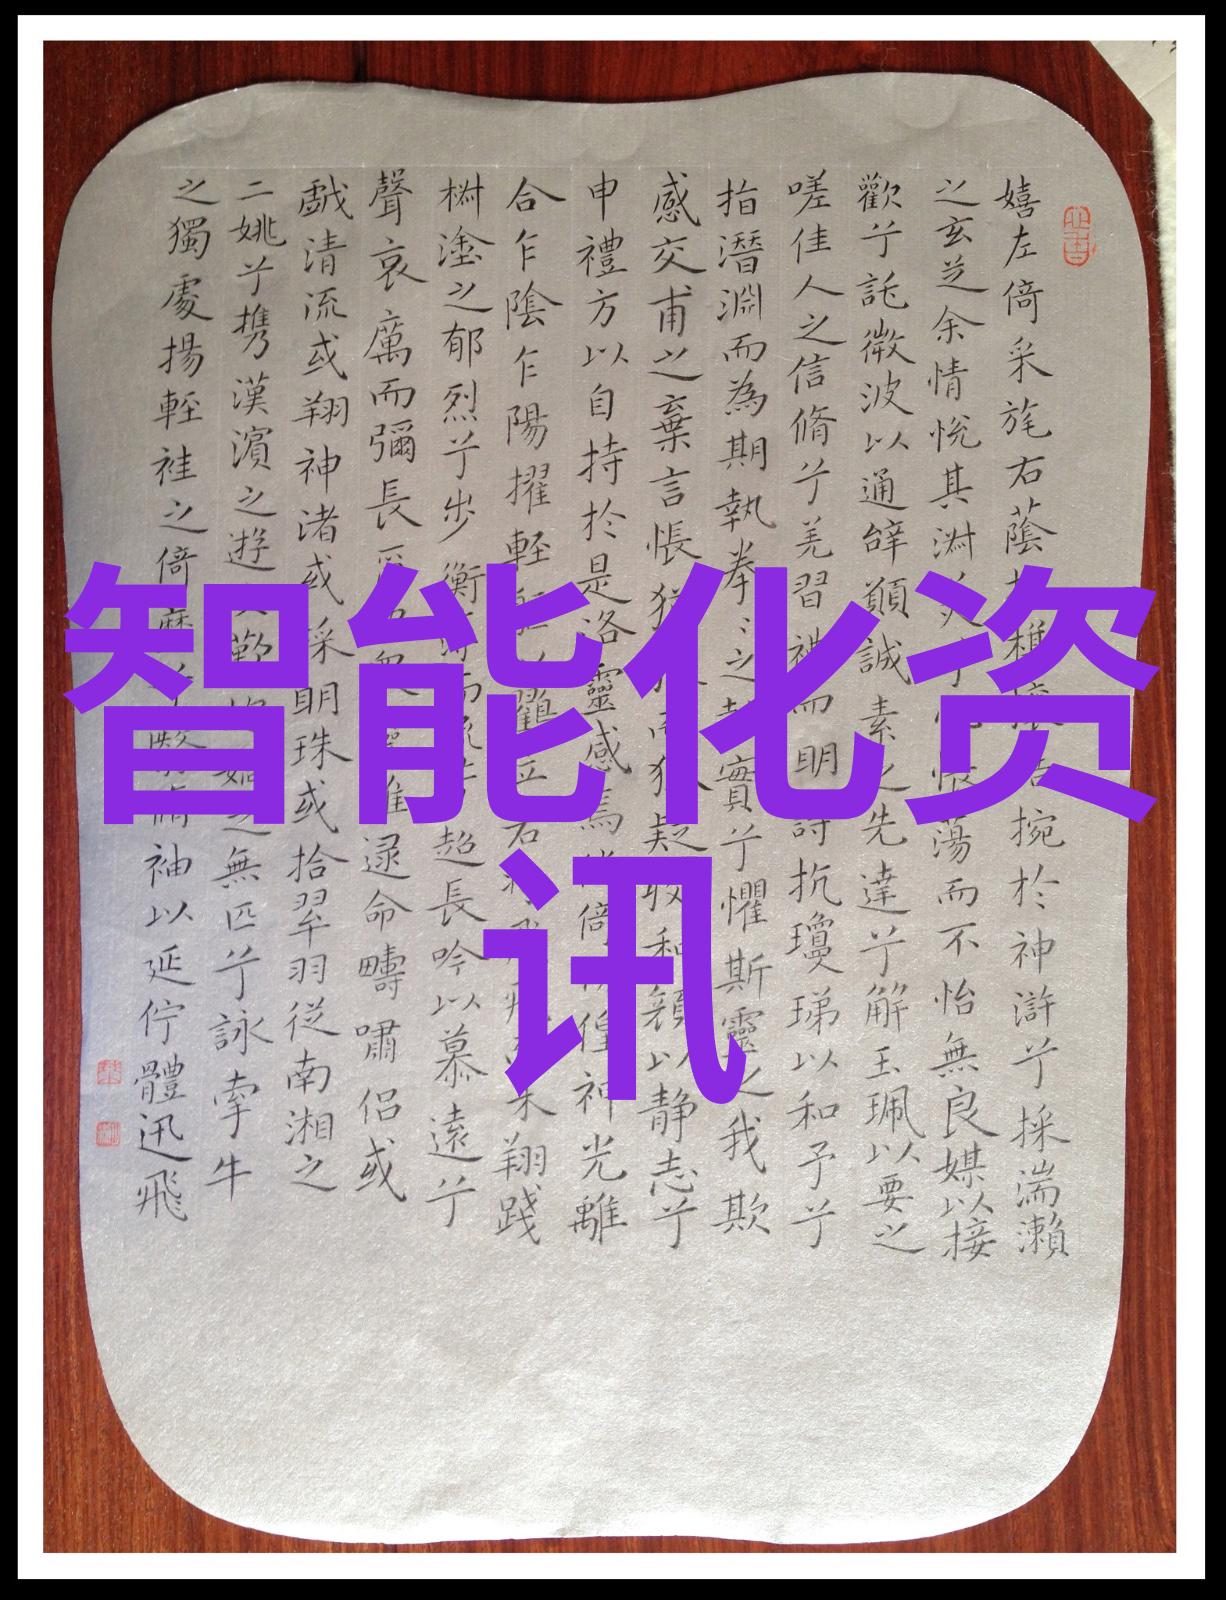 嬉左倚采旄右蔭捥於神滸兮採湍瀨
之玄芝余情悅其淋蕩而不怡無良媒以接
歡兮託微波以通辭顚誠素之先達兮解玉珮以要之
嗟佳人之信脩兮羌習禮而明詩抗瓊珶以和予兮
指潛淵而為期執拳〻之實兮懼斯靈之我欺
感交甫之棄言悵猶而狐疑收和顏以静志兮
申禮方以自持於是洛靈感焉倚徨神光離
合乍陰乍陽擢輕以鶴立若未翔踐
椒塗之郁烈兮步蘅而超長吟以慕遠兮
聲哀厲而彌長逯命疇嘯侶或
戲清流或翔神渚或採明珠或拾翠羽從南湘之
二姚兮攜漢濱之遊歎之無匹兮詠牽牛
之獨處揚輕袿之倚袖以延佇體迅飛
智能化资
讯